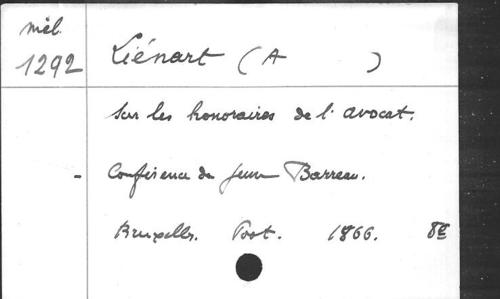 mél. Liénart (A )
1292
Sur les honoraires de l'avocat.
- Conférence du Jeune Barreau.
Bruxelles. Poot. 1866. 8º